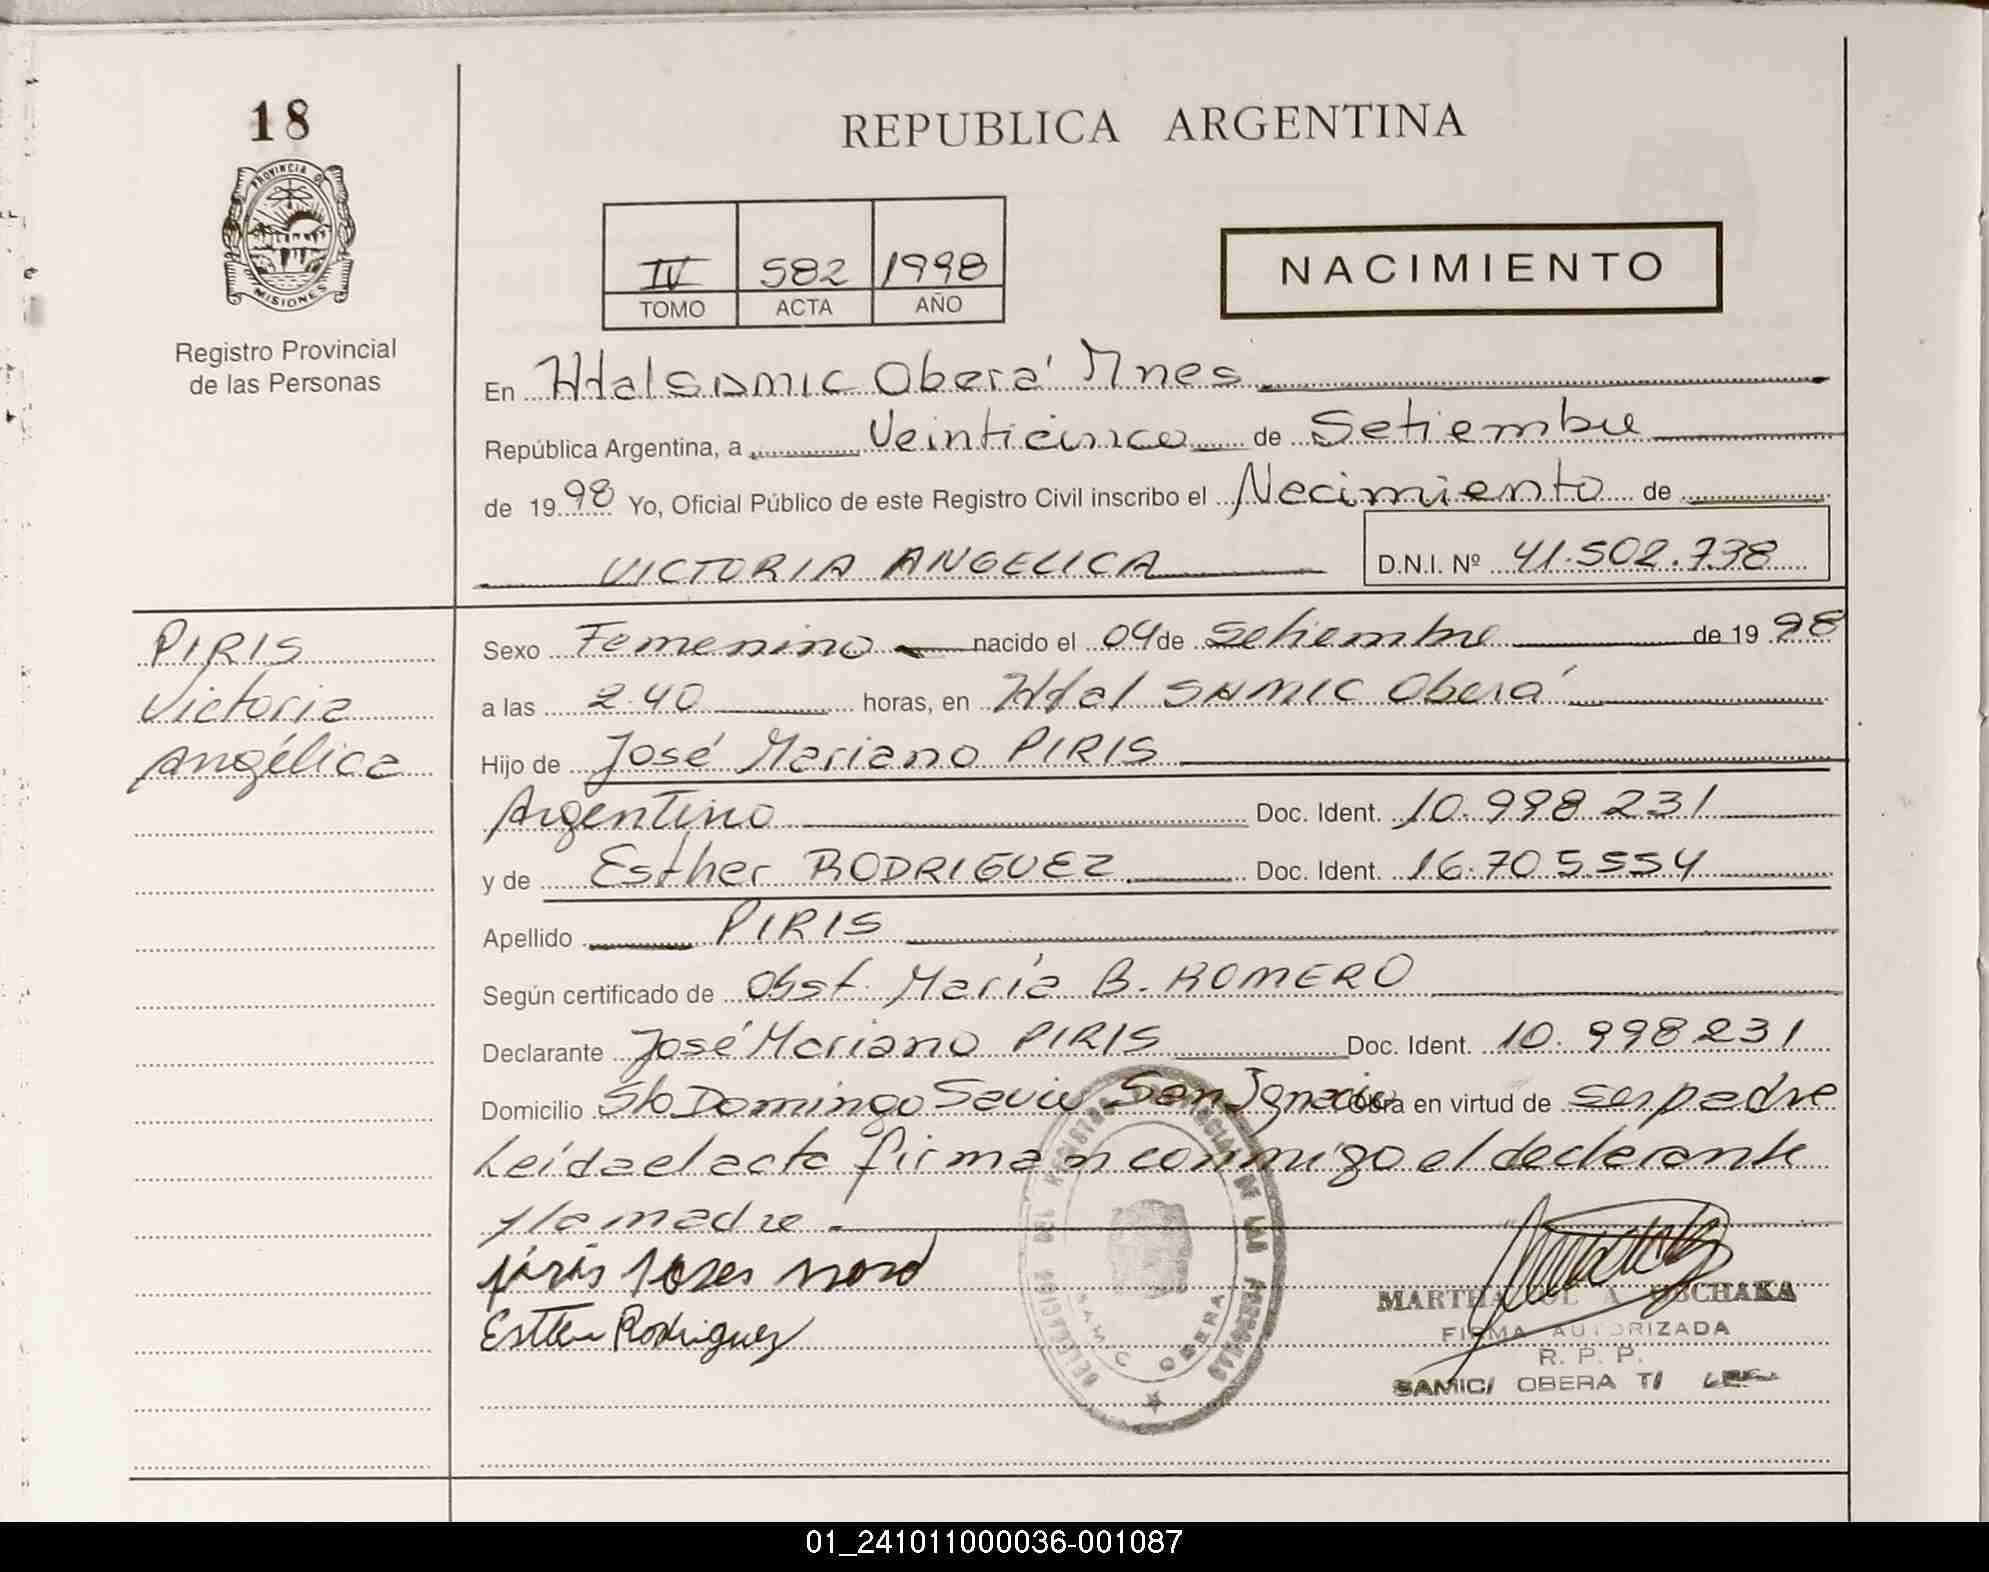 18
PROVINCIA DE
MISIONES
Registro Provincial
de las Personas
REPUBLICA ARGENTINA
IV 582 1998
TOMO ACTA AÑO
NACIMIENTO
En Htal SAMIC Oberá Mnes
República Argentina, a Veinticinco de Setiembre
de 1998 Yo, Oficial Público de este Registro Civil inscribo el Nacimiento de
VICTORIA ANGELICA D.N.I. Nº 41.502.738
PIRIS
Victoria
Angélica
Sexo Femenino nacido el 04 de Setiembre de 1998
a las 2.40 horas, en Htal SAMIC Oberá
Hijo de José Mariano PIRIS
Argentino Doc. Ident. 10.998.231
y de Esther RODRIGUEZ Doc. Ident. 16.705.554
Apellido PIRIS
Según certificado de Obst. María B. ROMERO
Declarante José Mariano PIRIS Doc. Ident. 10.998231
Domicilio Sto Domingo Savio San Ignacio Obra en virtud de ser padre
Leída el acta firman conmigo el declarante
y la madre.-
piris
Esther Rodriguez
DELEGACION DEL REGISTRO PROVINCIAL DE LAS PERSONAS
SAMIC OBERA
MARTHA A
FIRMA AUTORIZADA
R. P. P.
SAMIC/ OBERA
01_241011000036-001087